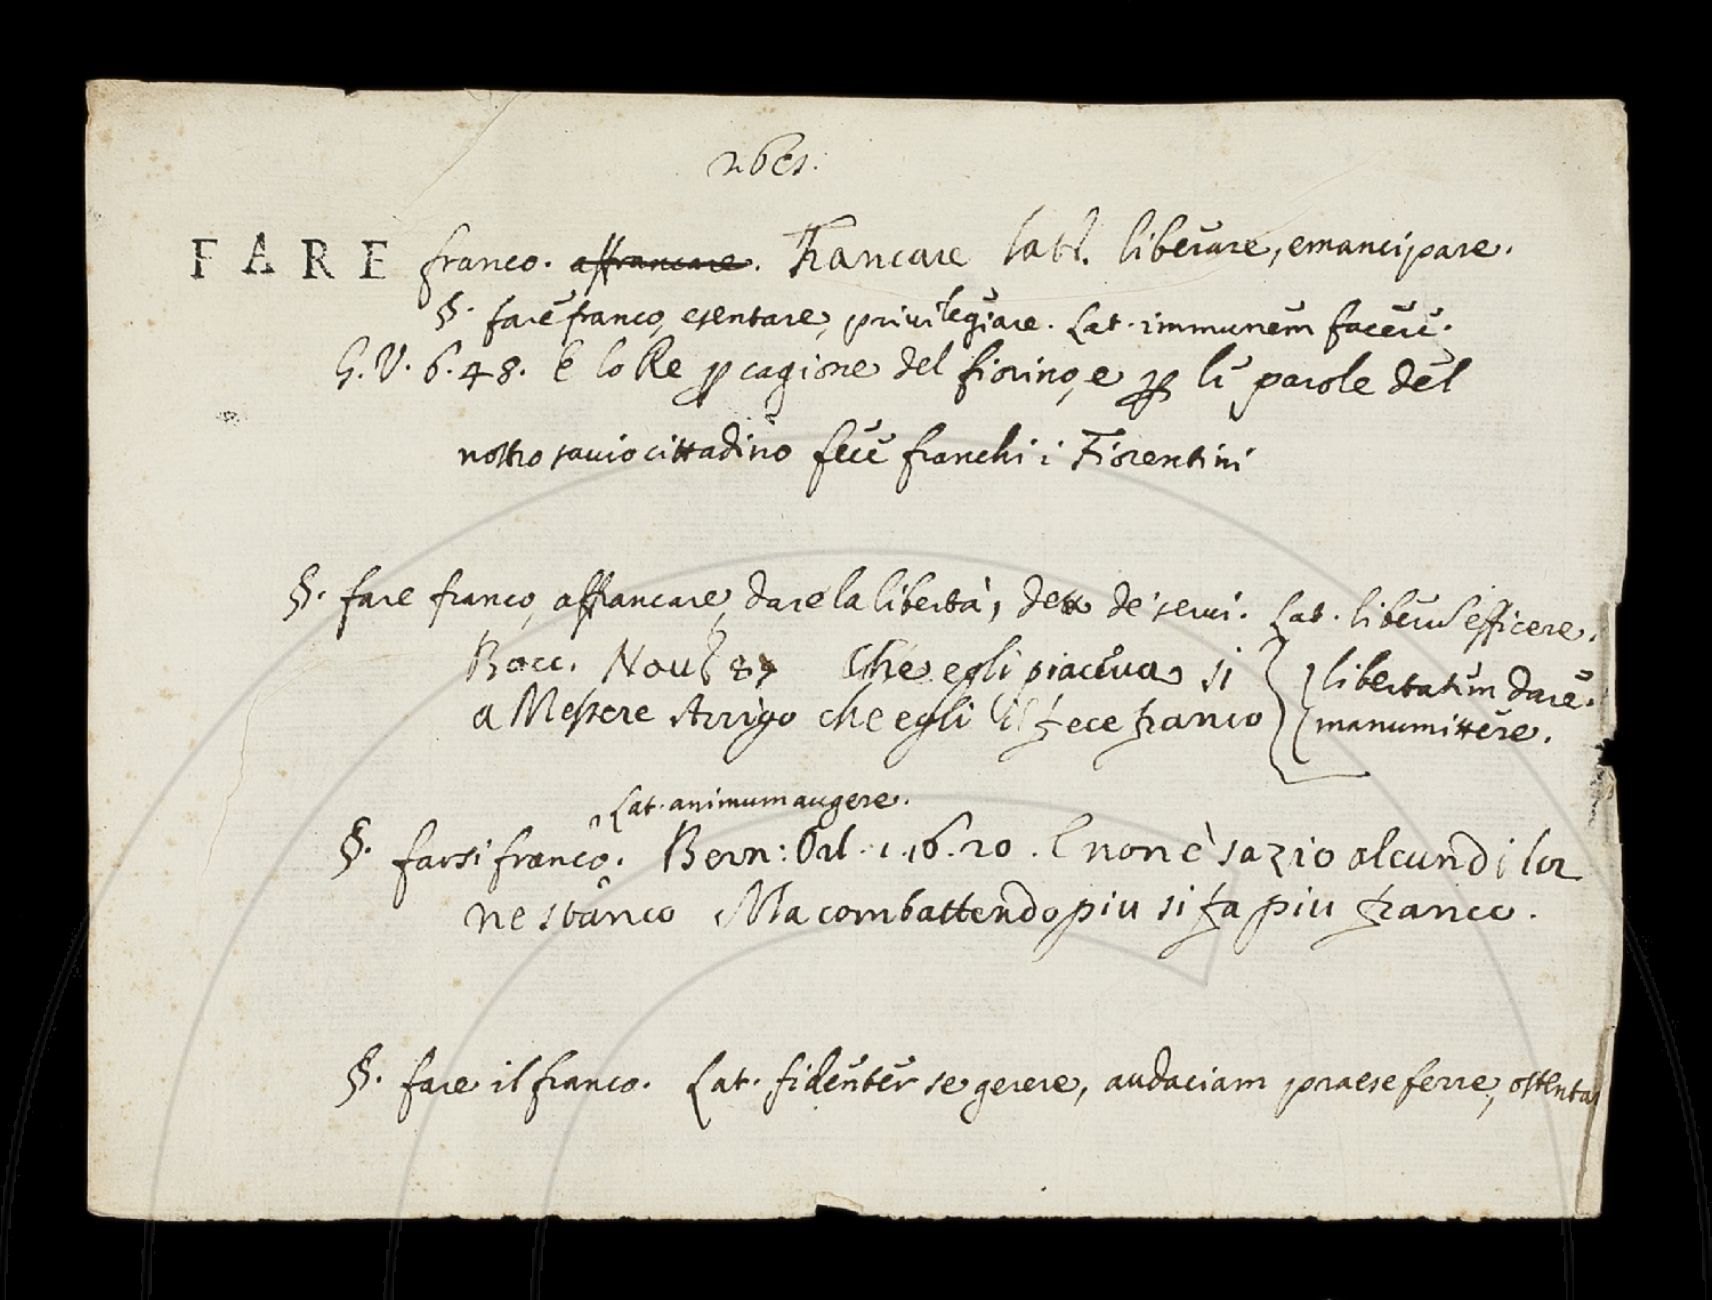 FARE franco. affrancare. Francare latt. liberare, emancipare.
§. fare franco, esentare, privilegiare. Lat. immunem facere.
G. V. 6. 48. E lo Re p cagione del fiorino, e p le parole del
nostro savio cittadino fece franchi i Fiorentini
§. fare franco, affrancare, dare la libertà, dett de' servi. Lat. liberum efficere.
Bocc. Nov. Che egli piaceva si
libertatem dare.
a Messere Arrigo che egli il fece franco
manumittere.
Lat. animum augere.
§. farsi franco. Bern: Orl. 1. 16. 20. E non è sazio alcun di lor
ne stanco Ma combattendo piu si fa piu franco.
§. fare il franco. Lat. fidenter se gerere, audaciam prae se ferre, ostenta